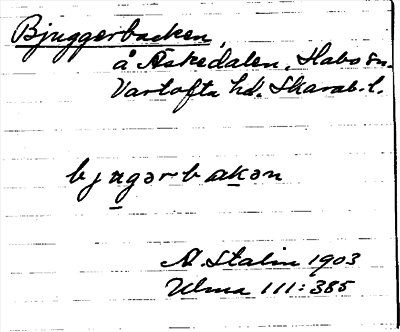 Bjuggerbacken,
å Äskedalen, Habo sn.
Vartofta hd. Skarab. l.
bjugərbakən
A. Stalin 1903
Ulma 111:385